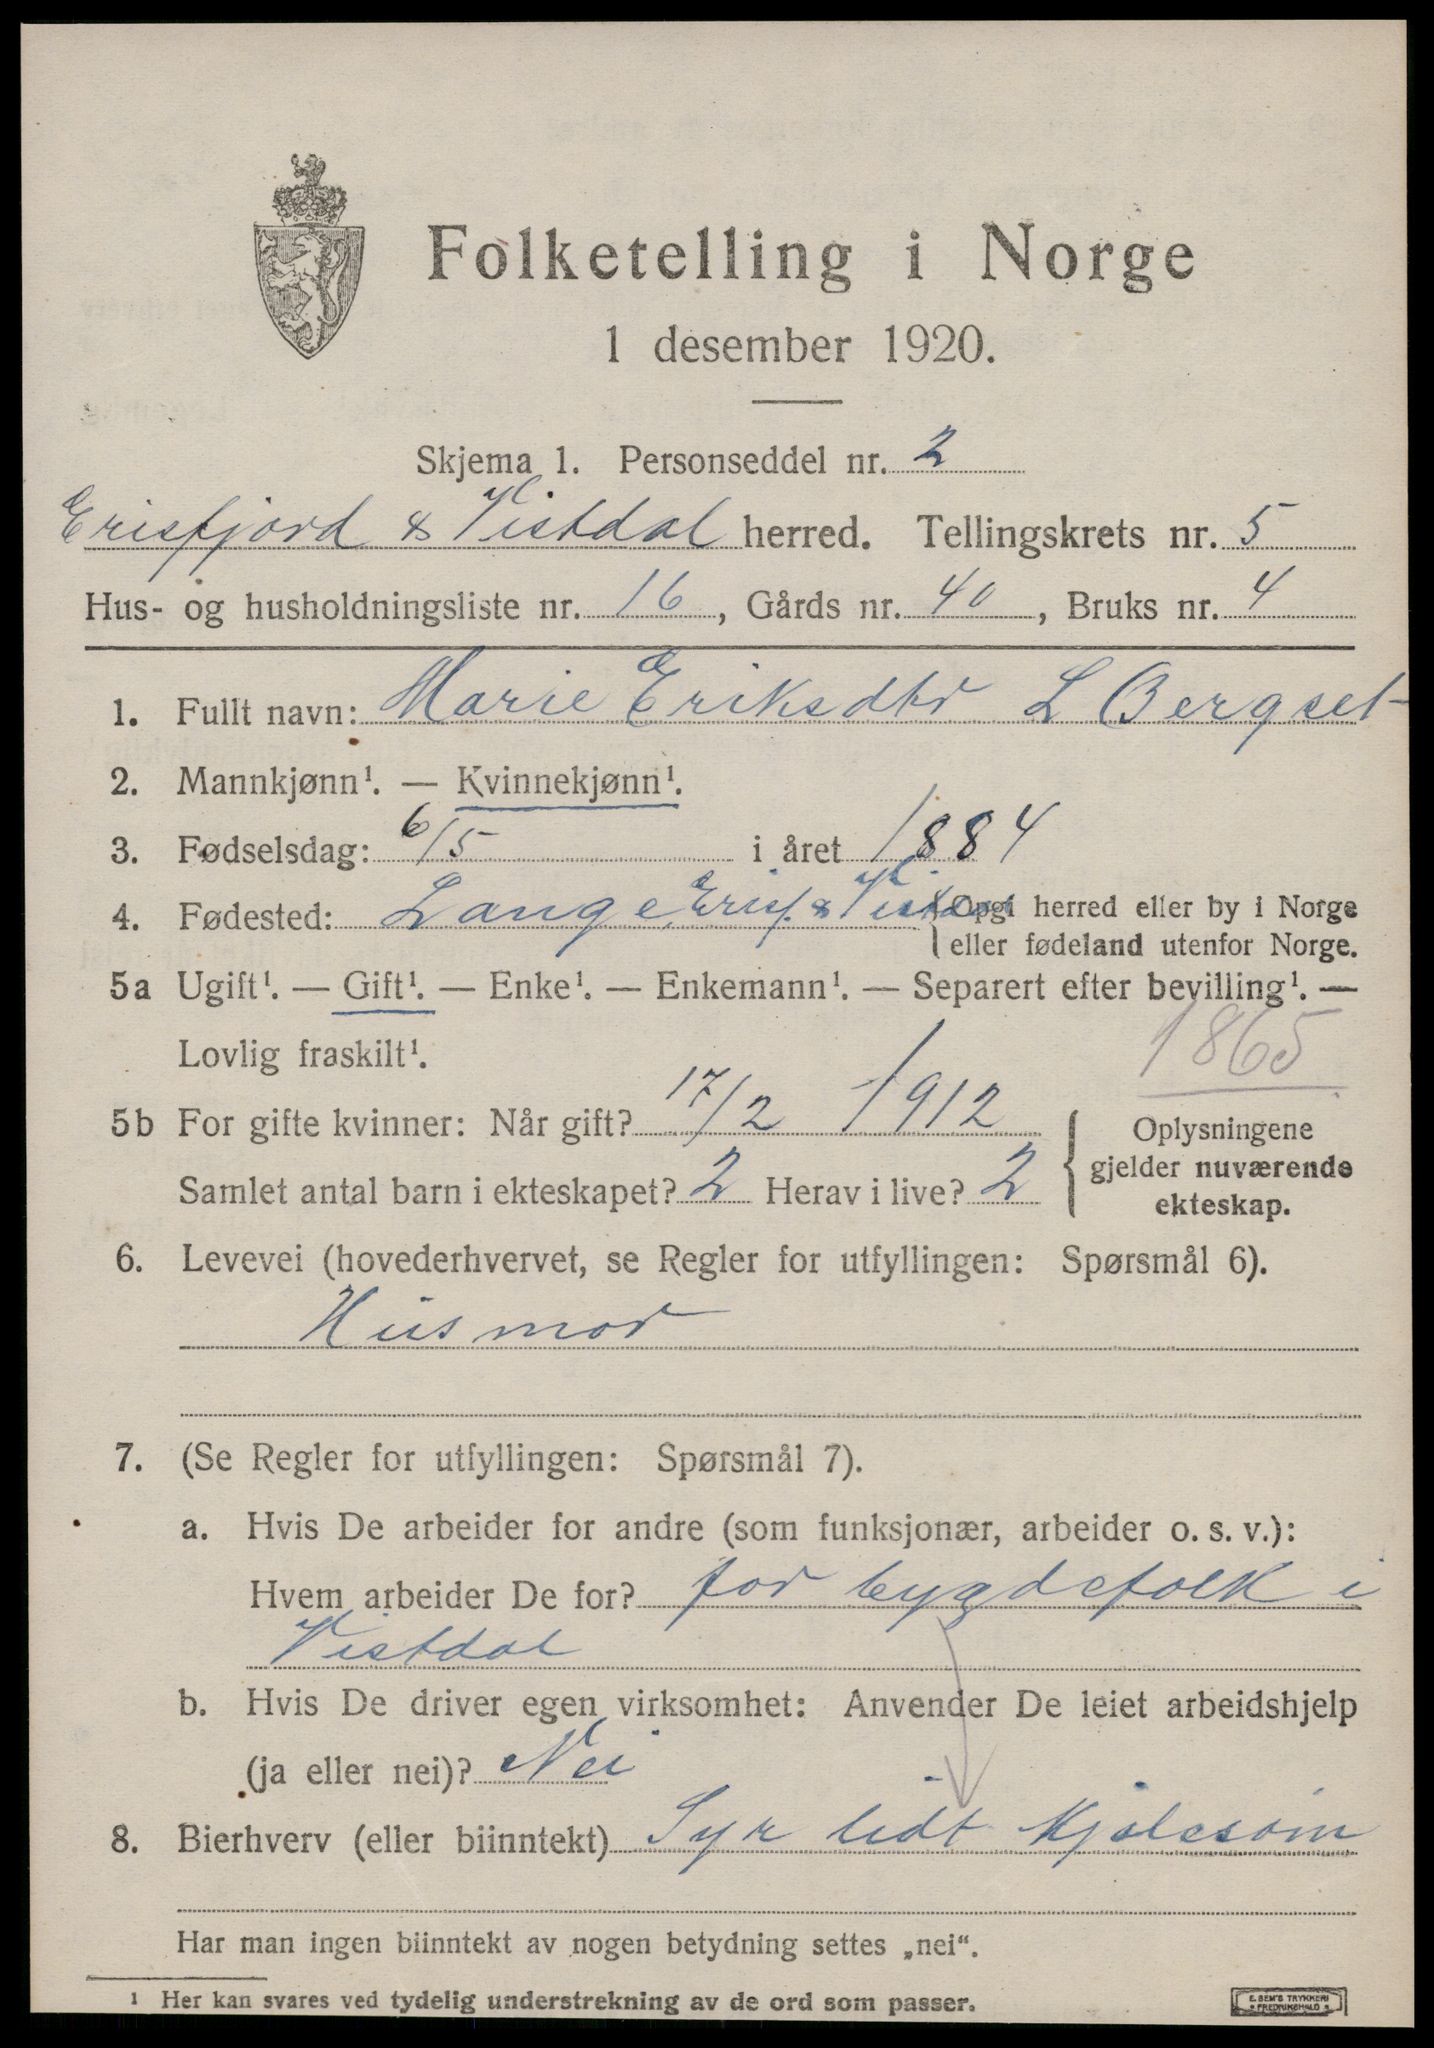 Folketelling i Norge
1 desember 1920.
Skjema 1. Personseddel nr. 2
Erisfjord & Vistdal herred. Tellingskrets nr. 5
Hus- og husholdningsliste nr. 16, Gårds nr. 40, Bruks nr. 4
1. Fullt navn: Marie Eriksdtr L Bergset
2. Mannkjønn¹. — Kvinnekjønn¹.
3. Fødselsdag: 6/5 i året 1884
4. Fødested: Lange, Erisf. & Vistdal {Opgi herred eller by i Norge
eller fødeland utenfor Norge.
5a Ugift¹. — Gift¹. — Enke¹. — Enkemann¹. — Separert efter bevilling¹. —
Lovlig fraskilt¹.
1865
5b For gifte kvinner: Når gift? 17/2 1912
Samlet antal barn i ekteskapet? 2 Herav i live? 2
{Oplysningene
gjelder nuværende
ekteskap.
6. Levevei (hovederhvervet, se Regler for utfyllingen: Spørsmål 6).
Husmor
7. (Se Regler for utfyllingen: Spørsmål 7).
a. Hvis De arbeider for andre (som funksjonær, arbeider o. s. v.):
Hvem arbeider De for? for bygdefolk i
Vistdal
b. Hvis De driver egen virksomhet: Anvender De leiet arbeidshjelp
(ja eller nei)? Nei
8. Bierhverv (eller biinntekt) Syr lidt Kjolesøm
Har man ingen biinntekt av nogen betydning settes „nei“.
¹ Her kan svares ved tydelig understrekning av de ord som passer.
E. SEM'S TRYKKERI
FREDRIKSHALD